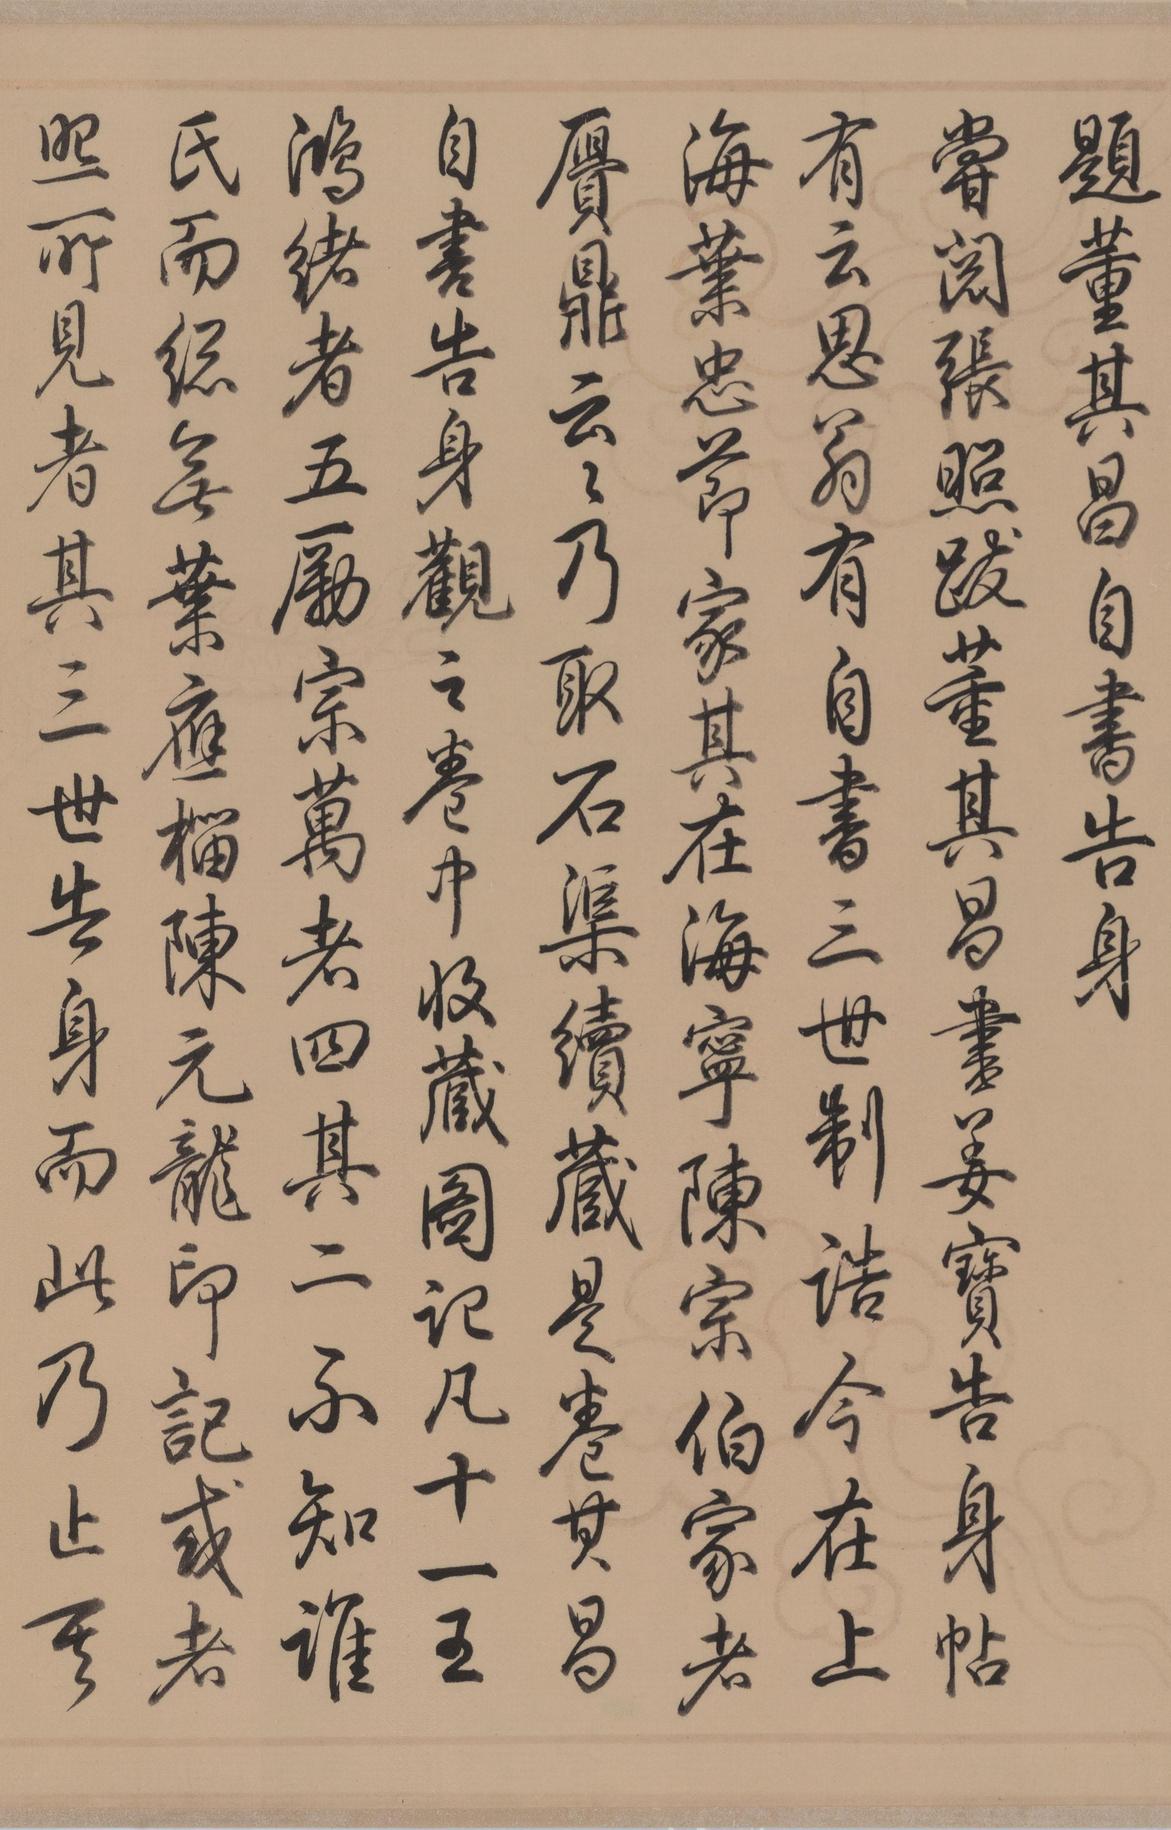 題董其昌自書告身
嘗閱張照跋董其昌書姜寶告身帖
有云思翁有自書三世制誥今在上
海葉忠節家其在海寧陳宗伯家者
贗鼎云々乃取石渠續藏是卷其昌
自書告身觀之卷中收藏圖記凡十一王
鴻緒者五勵宗萬者四其二不知誰
氏而總無葉應榴陳元龍印記或者
照所見者其三世告身而此乃止其